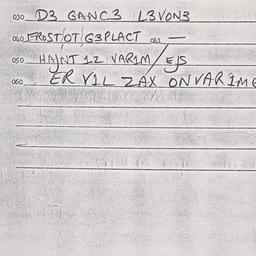 030 D3 GANC3 L3VON3
040 FROST/OT/G3PLACT 041 —
050 HA/NT 12 VAR1M/EJS
060 ER V1L ZAX ONVAR1M6